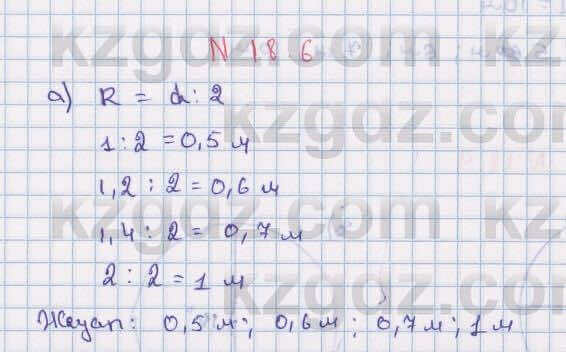 N 186
а) R = d : 2
1 : 2 = 0,5 м
1,2 : 2 = 0,6 м
1,4 : 2 = 0,7 м
2 : 2 = 1 м
Жауап: 0,5 м; 0,6 м; 0,7 м; 1 м
kzgdz.com